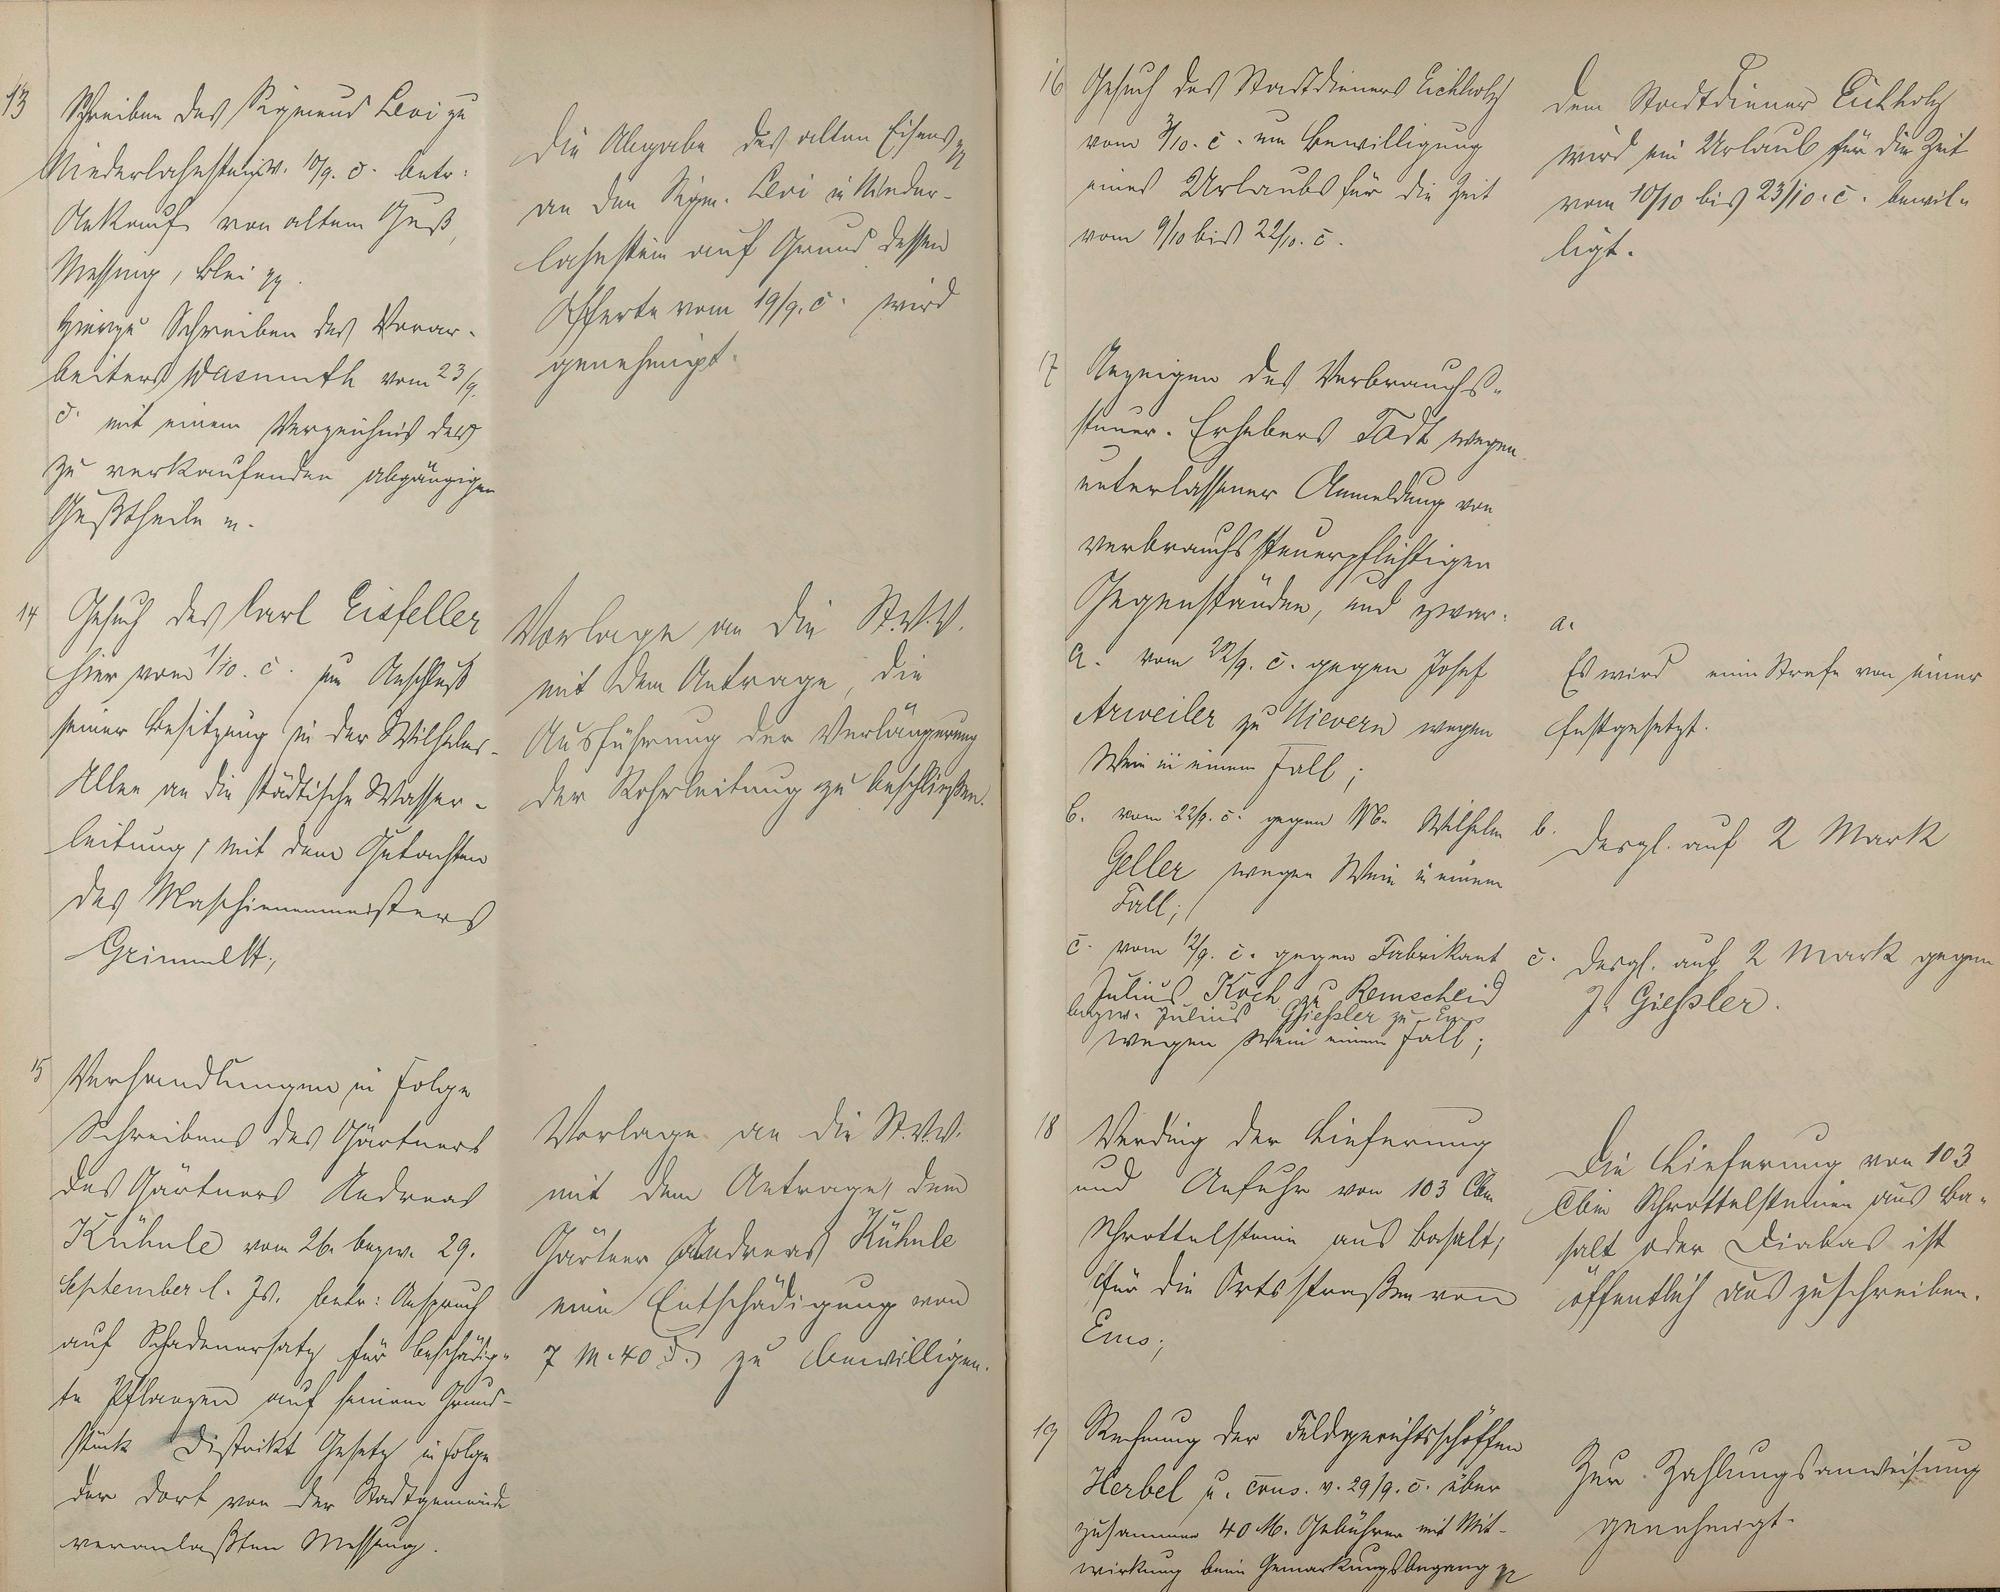 13
Schreiben des Sigmund Levi zu
Niederlahnstein v. 19/9. c. betr:
Ankauf von altem Guß,
Messing, Blei pp.
hierzu Schreiben des Vorar-
beiters Wasmuth vom 23/9.
c. mit einem Verzeichnis der
zu verkaufenden abgängigen
Gußtheile
Die Abgabe des alten Eisens pp
an den Sigm. Levi in Nieder-
lahnstein auf Grund dessen
Offerte vom 19/9. c. wird
genehmigt.
14
Gesuch des Carl Eisfeller
hier vom 1/10. c. um Anschluß
seiner Besitzung in der Wilhelms-
Allee an die städtische Wasser-
leitung, mit dem Gutachten
des Maschinenmeisters
Grimmelt;
Vorlage an die St.V.V.
mit dem Antrage, die
Ausführung der Verlängerung
der Rohrleitung zu beschließen.
15
Verhandlungen in Folge
Schreibens des Gärtners
des Gärtners Andreas
Kühnle vom 26. bezw. 29.
September l. Js. betr: Anspruch
auf Schadenersatz für beschädig-
te Pflanzen auf seinem Grund-
stück Distrikt Gesetz in Folge
der dort von der Stadtgemeinde
veranlaßten Messung.
Vorlage an die St.V.V.
mit dem Antrage, dem
Gärtner Andreas Kühnle
eine Entschädigung von
7 M. 40 d. zu bewilligen.
16
Gesuch des Stadtdieners Eichholz
vom 3/10. c. um Bewilligung
eines Urlaubs für die Zeit
vom 9/10 bis 22/10. c.
Dem Stadtdiener Eichholz
wird ein Urlaub für die Zeit
vom 10/10 bis 23/10. c. bewil-
ligt.
17
Anzeigen des Verbrauchs-
steuer-Erhebers Tödt wegen
unterlassener Anmeldung von
verbrauchssteuerpflichtigen
Gegenständen, und zwar:
a. vom 22/9. c. gegen Josef
Arweiler zu Nievern wegen
Wein in einem Fall;
b. vom 22/9. c. gegen W. Wilhelm
Geller wegen Wein in einem
Fall;
c. vom 12/9. c. gegen Fabrikant
Julius Koch zu Remscheid
bezw. Julius Gießler zu Ems
wegen Wein einem Fall;
a.
Es wird eine Strafe von einer
festgesetzt.
b.
desgl. auf 2 Mark
c. desgl. auf 2 Mark gegen
J. Gießler.
18
Verding der Lieferung
und Anfuhr von 103 Cbm
Schrottelsteine aus Basalt;
für die Ortsstraßen von
Ems;
Die Lieferung von 103
Cbm Schrottelsteinen aus Ba-
salt oder Diabas ist
öffentlich auszuschreiben.
19
Rechnung der Feldgerichtsschöffen
Herbel u. cons. v. 29/9. c. über
zusammen 40 M. Gebühren mit Mit-
wirkung beim Gemarkungsbegang pp
Zur Zahlungsanweisung
genehmigt.